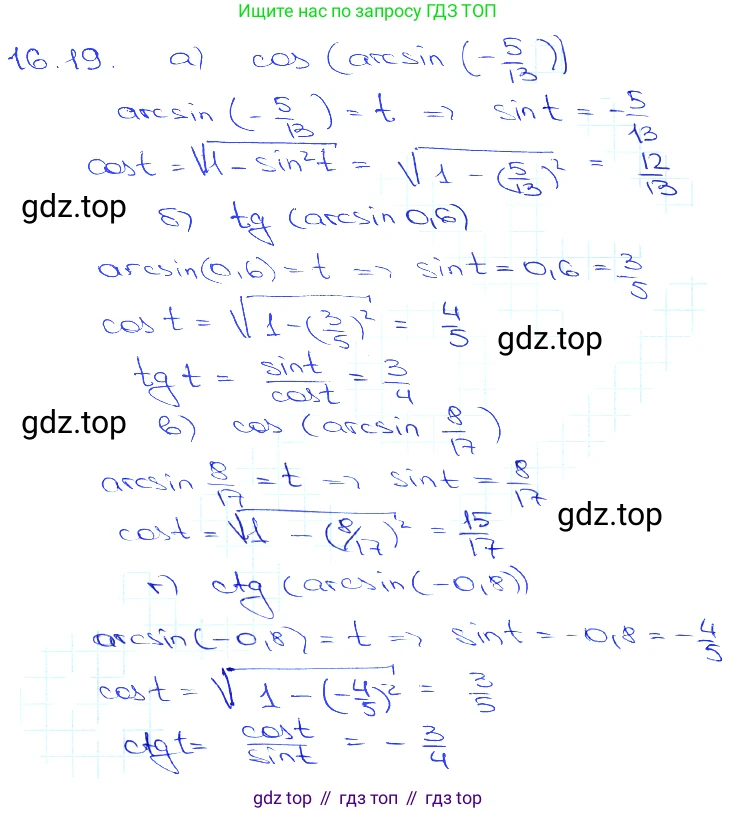 Ищите нас по запросу ГДЗ ТОП
16.19. а) cos (arcsin (-5/13))
arcsin (-5/13) = t => sin t = -5/13
cos t = √(1 - sin²t) = √(1 - (5/13)²) = 12/13
gdz.top
б) tg (arcsin 0,6)
arcsin(0,6) = t => sin t = 0,6 = 3/5
cos t = √(1 - (3/5)²) = 4/5
gdz.top
tg t = sin t/cos t = 3/4
gdz.top
в) cos (arcsin 8/17)
arcsin 8/17 = t => sin t = 8/17
gdz.top
cos t = √(1 - (8/17)²) = 15/17
г) ctg (arcsin(-0,8))
arcsin(-0,8) = t => sin t = -0,8 = -4/5
cos t = √(1 - (-4/5)²) = 3/5
ctg t = cos t/sin t = - 3/4
gdz top // гдз топ // gdz top